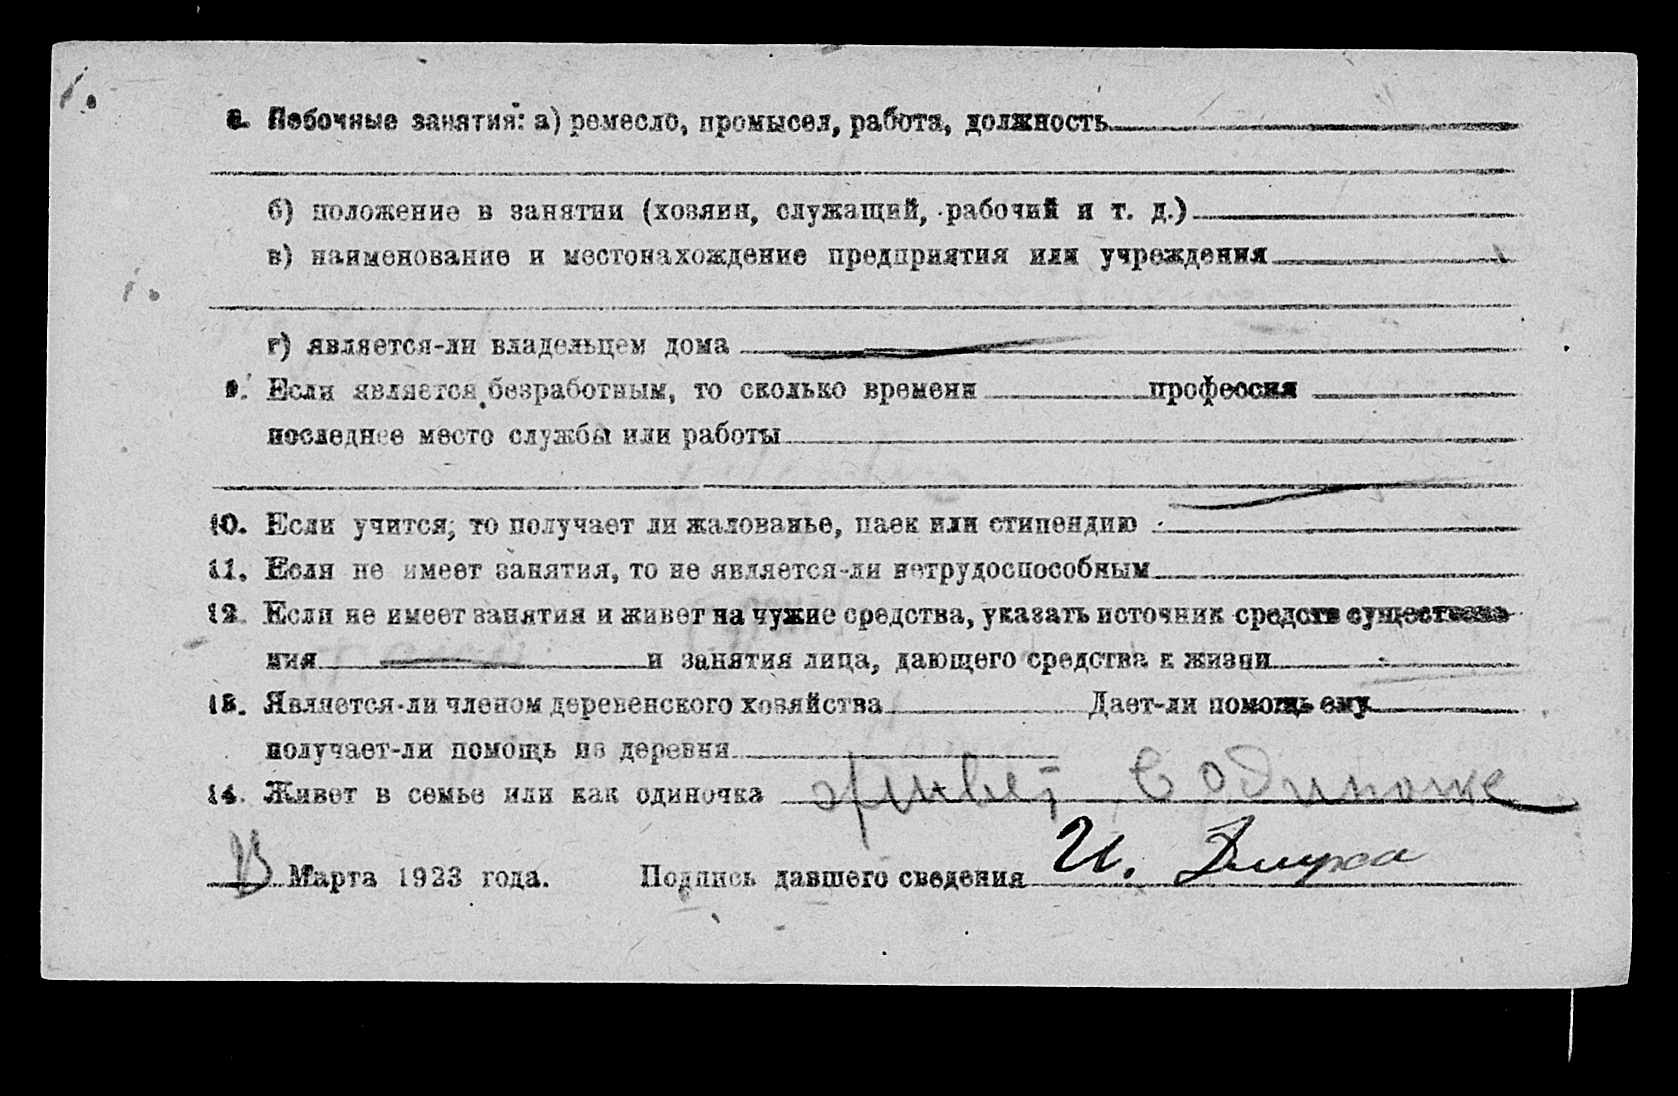 8. Побочные занятия: а) ремесло, промысел, работа, должность
б) положение в занятии (хозяин, служащий, рабочий и т. д.)
в) наименование и местонахождение предприятия или учреждения
г) является-ли владельцем дома
9. Если является безработным, то сколько времени профессия
последнее место службы или работы
10. Если учится, то получает ли жалованье, паек или стипендию
11. Если не имеет занятия, то не является-ли нетрудоспособным
12. Если не имеет занятия и живет на чужие средства, указать источник средств существова-
ния и занятия лица, дающего средства к жизни
13. Является-ли членом деревенского хозяйства Дает-ли помощь ему
получает-ли помощь из деревни
14. Живет в семье или как одиночка живет
Марта 1923 года. Подпись давшего сведения И.